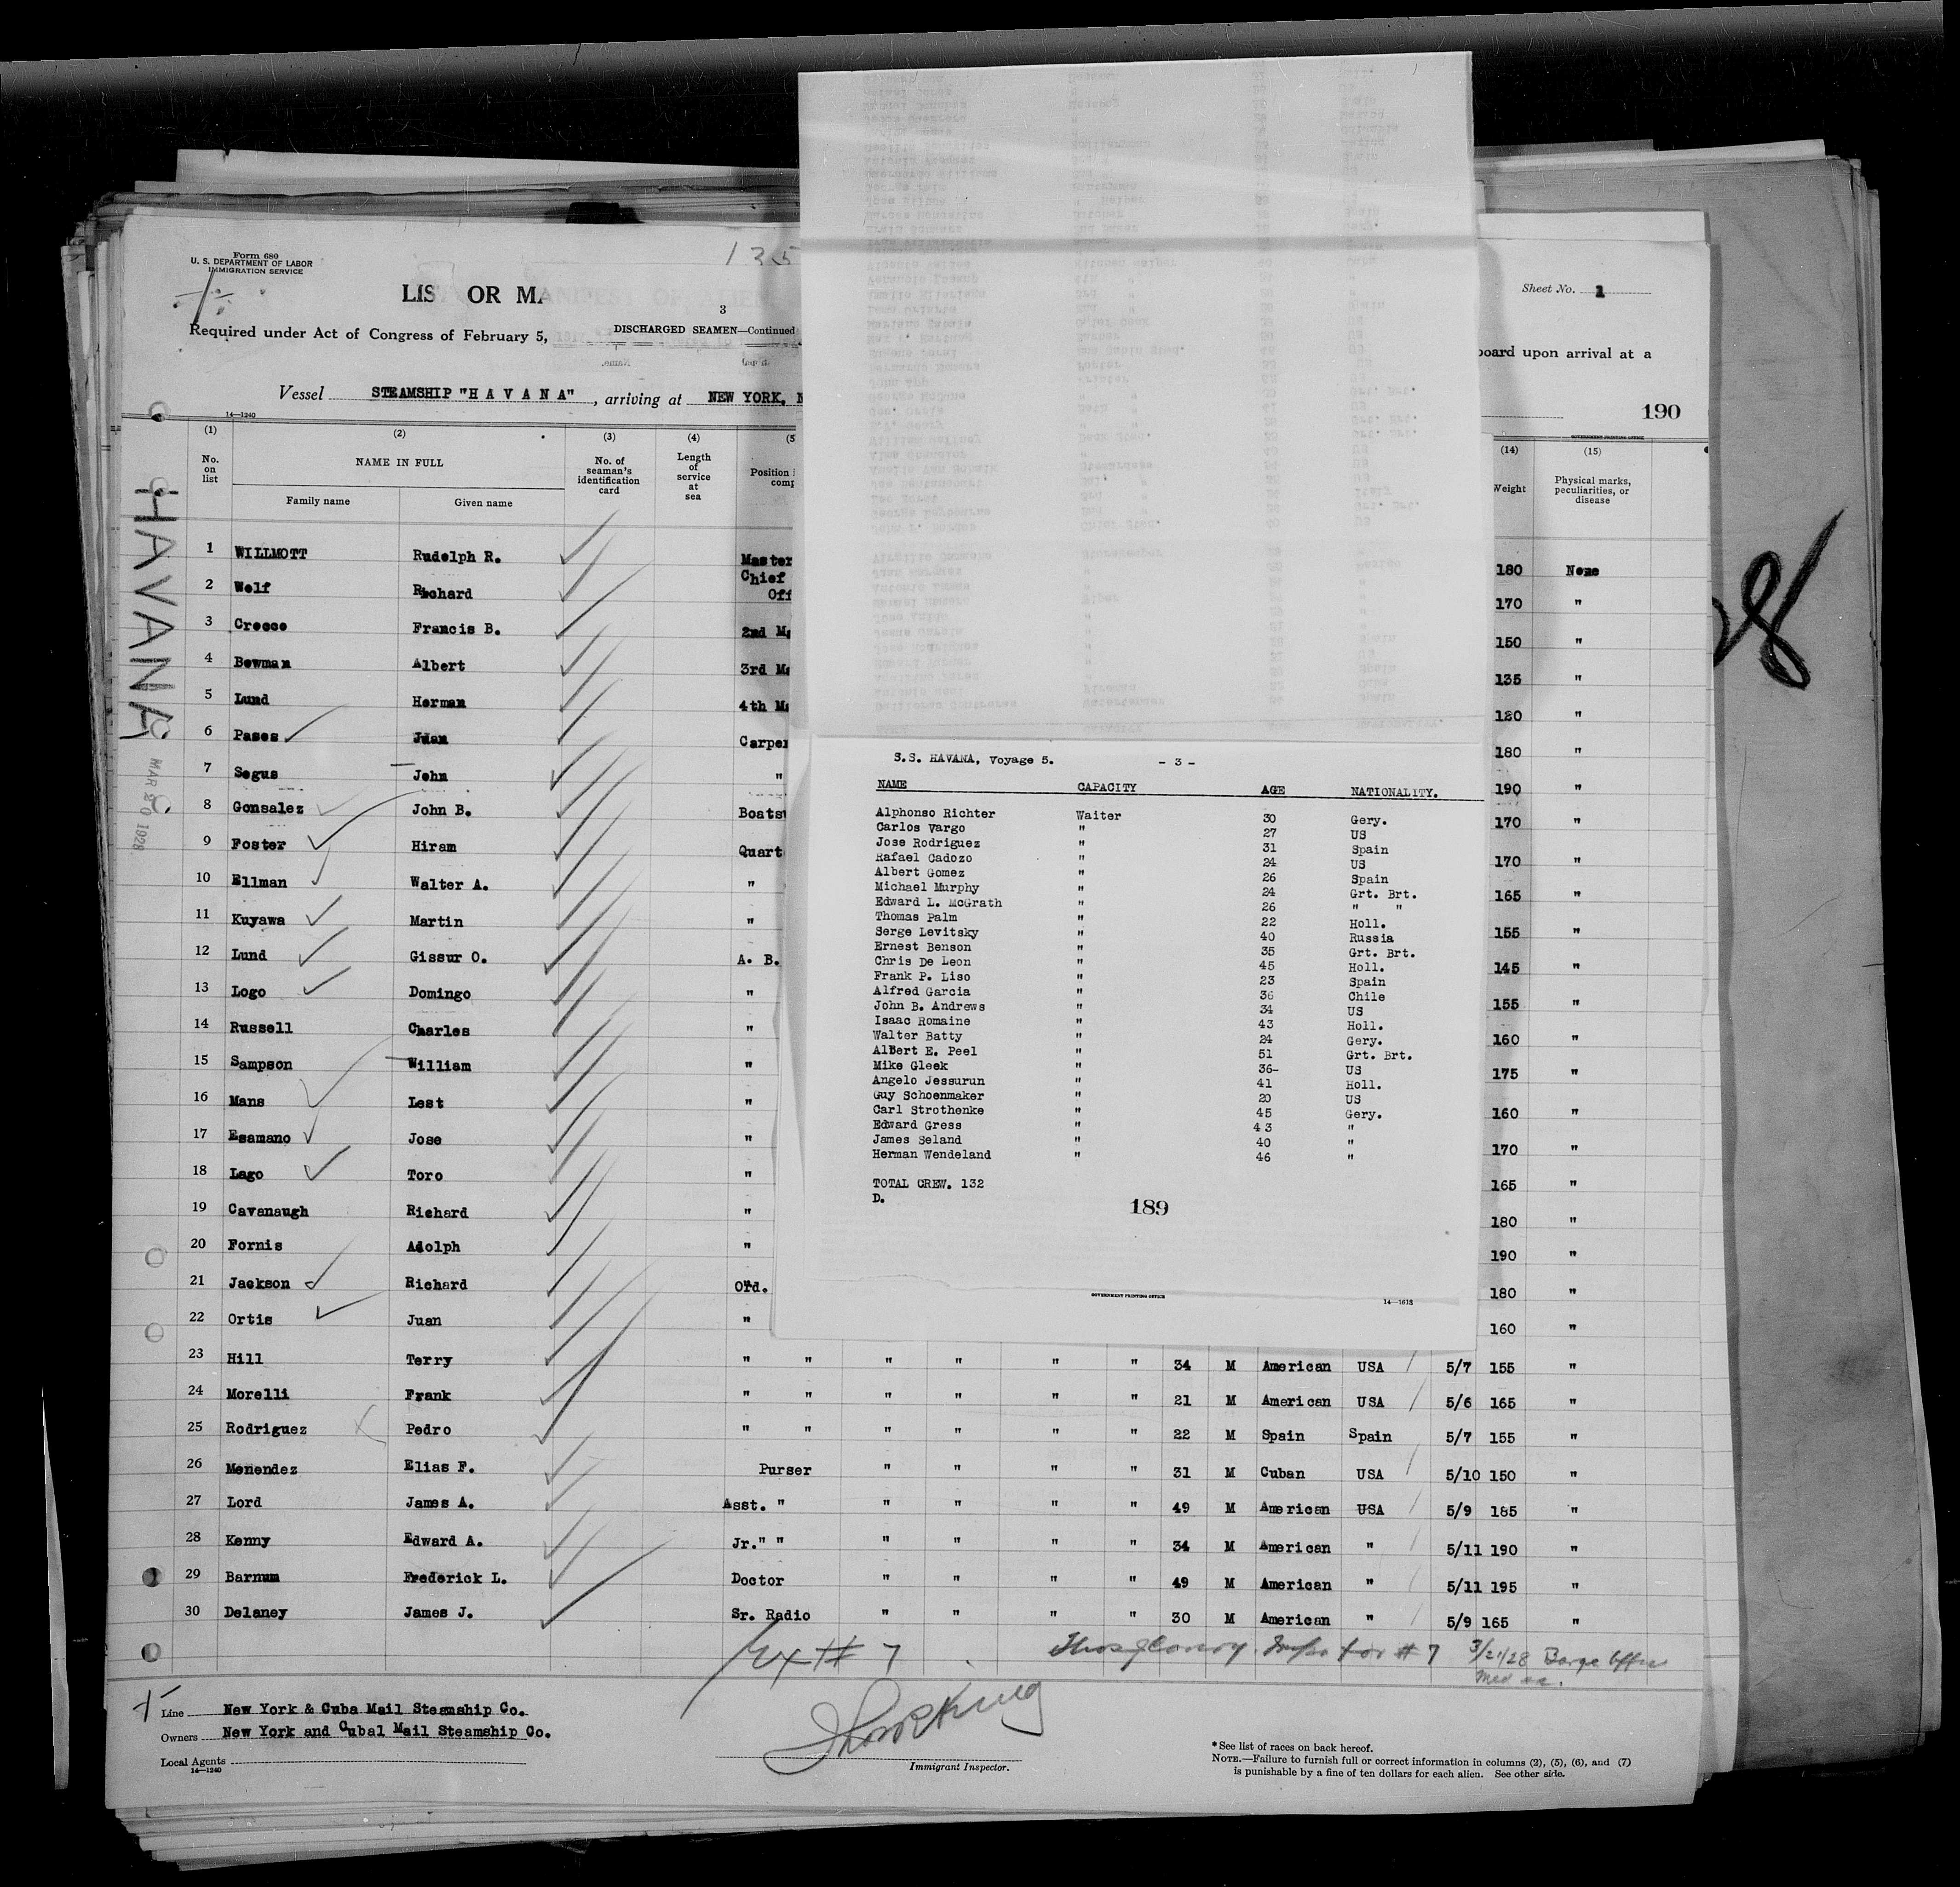 Form 680
U. S. DEPARTMENT OF LABOR
IMMIGRATION SERVICE
135
LIS OR MANIFEST OF ALIEN
3
Required under Act of Congress of February 5,
DISCHARGED SEAMEN—Continued
Sheet No. 1
board upon arrival at a
Vessel STEAMSHIP "H A V A N A", arriving at NEW YORK, N
14—1240
190
GOVERNMENT PRINTING OFFICE
HAVANA
MAR 20 1928
28
(1) (2) (3) (4) (5 (14) (15)
No. on list
NAME IN FULL
Family name Given name
No. of seaman's identification card
Length of service at sea
Position i
comp
Weight
Physical marks, peculiarities, or disease
1 WILLMOTT Rudolph R. Master 180 None
2 Wolf Richard Chief Off 170 "
3 Creece Francis B. 2nd Ma 150 "
4 Bowman Albert 3rd Ma 135 "
5 Lund Herman 4th Ma 120 "
6 Pases Juan Carpe 180 "
7 Segus John " 190 "
8 Gonsalez John B. Boats 170 "
9 Foster Hiram Quart 170 "
10 Ellman Walter A. " 165 "
11 Kuyawa Martin " 155 "
12 Lund Gissur O. A. B. 145 "
13 Logo Domingo " 155 "
14 Russell Charles " 160 "
15 Sampson William " 175 "
16 Mans Lest " 160 "
17 Esamano Jose " 170 "
18 Lago Toro " 165 "
19 Cavanaugh Richard " 180 "
20 Fornis Adolph " 190 "
21 Jackson Richard Ord. 180 "
22 Ortis Juan " 160 "
23 Hill Terry " " " " " " 34 M American USA 5/7 155 "
24 Morelli Frank " " " " " " 21 M American USA 5/6 165 "
25 Rodriguez Pedro " " " " " " 22 M Spain Spain 5/7 155 "
26 Menendez Elias F. Purser " " " " 31 M Cuban USA 5/10 150 "
27 Lord James A. Asst. " " " " " 49 M American USA 5/9 185 "
28 Kenny Edward A. Jr." " " " " " 34 M American " 5/11 190 "
29 Barnum Frederick L. Doctor " " " " 49 M American " 5/11 195 "
30 Delaney James J. Sr. Radio " " " " 30 M American " 5/9 165 "
S.S. HAVANA, Voyage 5. - 3 -
NAME CAPACITY AGE NATIONALITY.
Alphonso Richter Waiter 30 Gery.
Carlos Vargo " 27 US
Jose Rodriguez " 31 Spain
Rafael Cadozo " 24 US
Albert Gomez " 26 Spain
Michael Murphy " 24 Grt. Brt.
Edward L. McGrath " 26 " "
Thomas Palm " 22 Holl.
Serge Levitsky " 40 Russia
Ernest Benson " 35 Grt. Brt.
Chris De Leon " 45 Holl.
Frank P. Liso " 23 Spain
Alfred Garcia " 36 Chile
John B. Andrews " 34 US
Isaac Romaine " 43 Holl.
Walter Batty " 24 Gery.
Albert E. Peel " 51 Grt. Brt.
Mike Gleek " 36- US
Angelo Jessurun " 41 Holl.
Guy Schoenmaker " 20 US
Carl Strothenke " 45 Gery.
Edward Gress " 43 "
James Seland " 40 "
Herman Wendeland " 46 "
TOTAL CREW. 132
D.
189
GOVERNMENT PRINTING OFFICE
14—1613
Ex # 7
for # 7 3/21/28 Barge Office
Line New York & Cuba Mail Steamship Co.
Owners New York and Cubal Mail Steamship Co.
Local Agents
14—1240
Immigrant Inspector.
* See list of races on back hereof.
NOTE.—Failure to furnish full or correct information in columns (2), (5), (6), and (7)
is punishable by a fine of ten dollars for each alien. See other side.